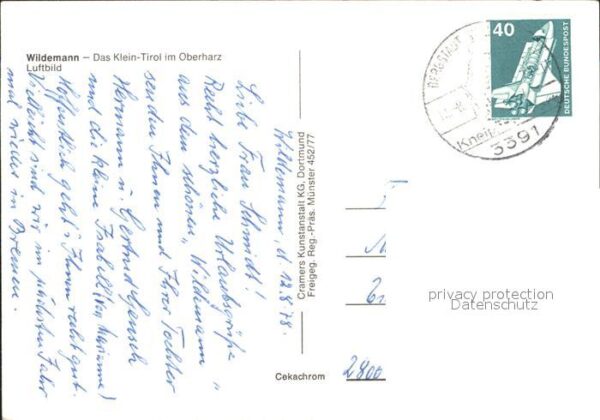 Wildemann — Das Klein-Tirol im Oberharz
Luftbild
Wildemann, d. 12.8.78.
Liebe Frau Schmidt!
Recht herzliche Urlaubsgrüße
aus dem schönen „Wildemann"
senden Ihnen und Ihrer Tochter
Hermann u. Gertrud
und die kleine Isabell
Hoffentlich geht's Ihnen recht gut.
Vielleicht sind wir im nächsten Jahr
mal wieder in Bremen.
Cramers Kunstanstalt KG, Dortmund
Freigeg. Reg.-Präs. Münster 452/77
Cekachrom
40
DEUTSCHE BUNDESPOST
BERGSTADT
Kneip
3391
2800
privacy protection
Datenschutz